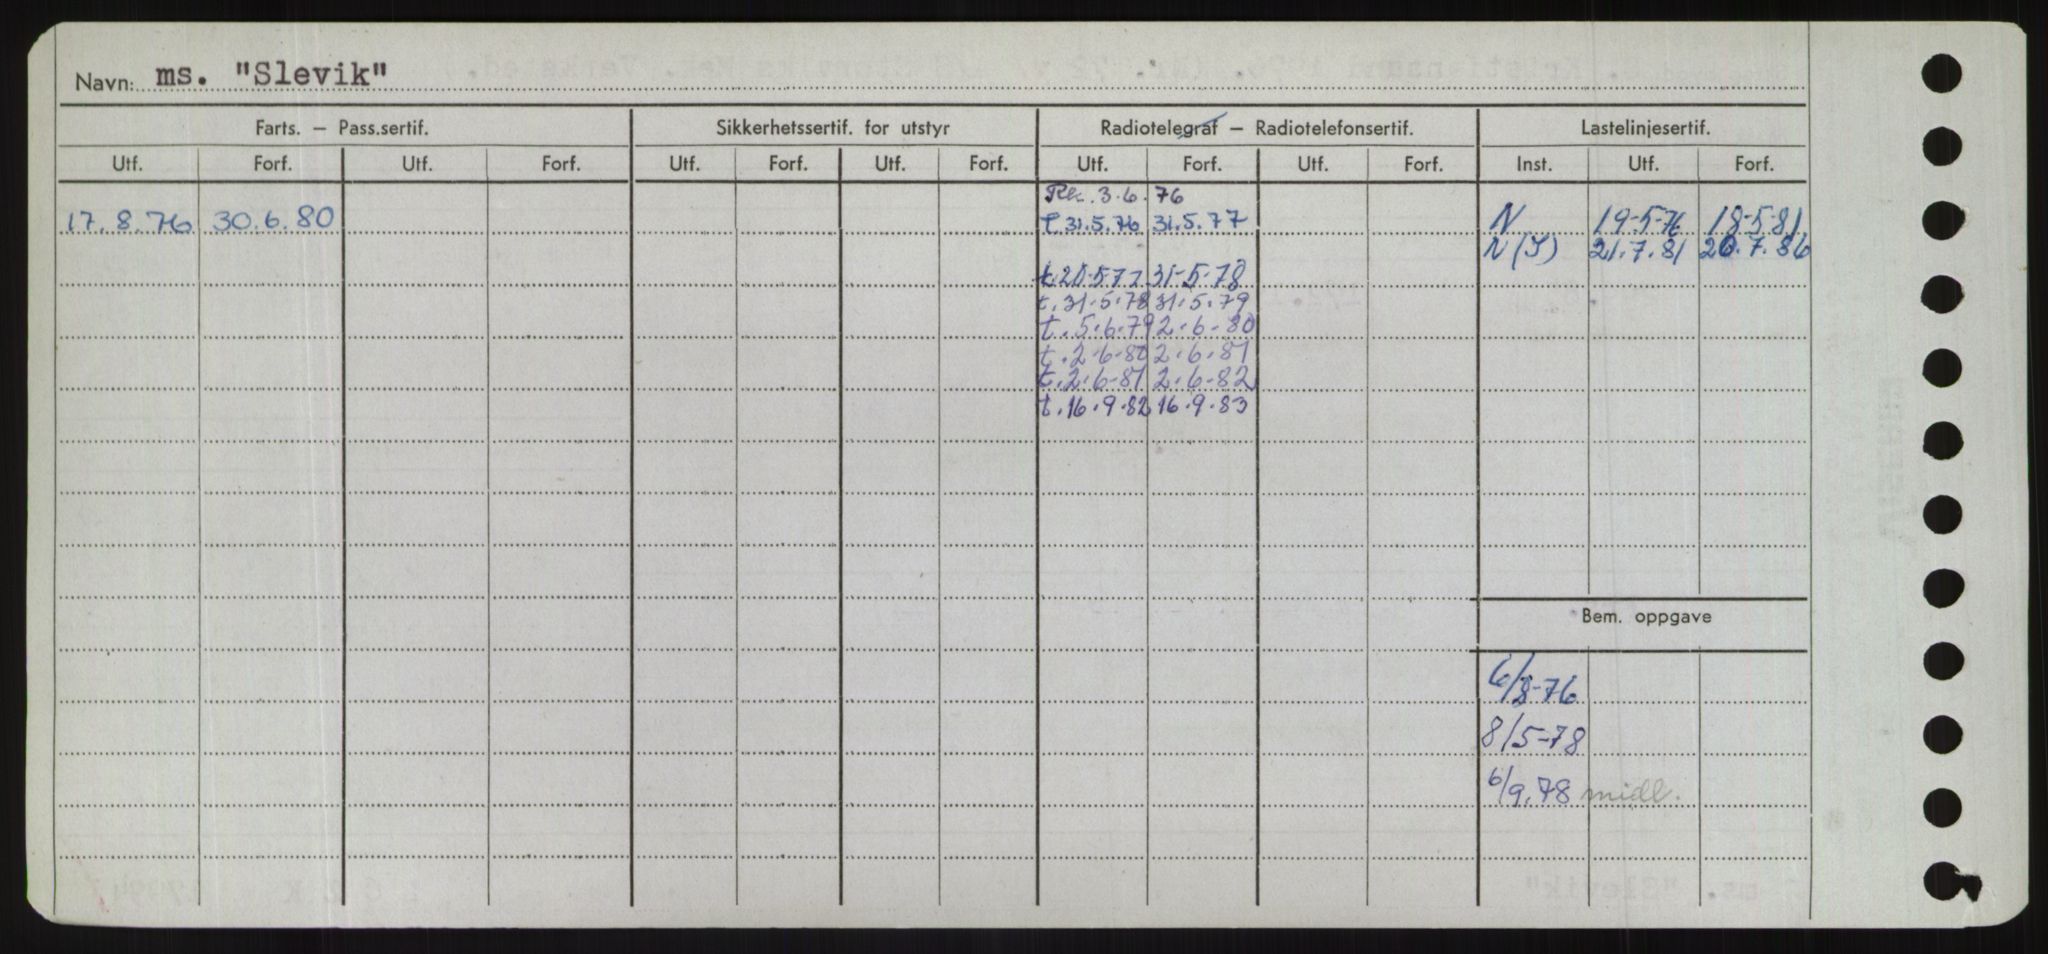 Navn: ms. "Slevik"
Farts. – Pass.sertif. Sikkerhetssertif. for utstyr Radiotelegraf – Radiotelefonsertif. Lastelinjesertif.
Utf. Forf. Utf. Forf. Utf. Forf. Utf. Forf. Utf. Forf. Utf. Forf. Inst. Utf. Forf.
3.6.76
17.8.76 30.6.80 t 31.5.76 31.5.77 N 19-5-76 18-5-81
N(I) 21.7.81 20.7.86
t.20-5-77 31-5-78
t.31.5.78 31.5.79
t.5.6.79 2.6.80
t.2.6.80 2.6.81
t.2.6-81 2.6-82
t.16.9.82 16.9.83
Bem. oppgave
6/8-76
8/5-78
6/9.78 midl.